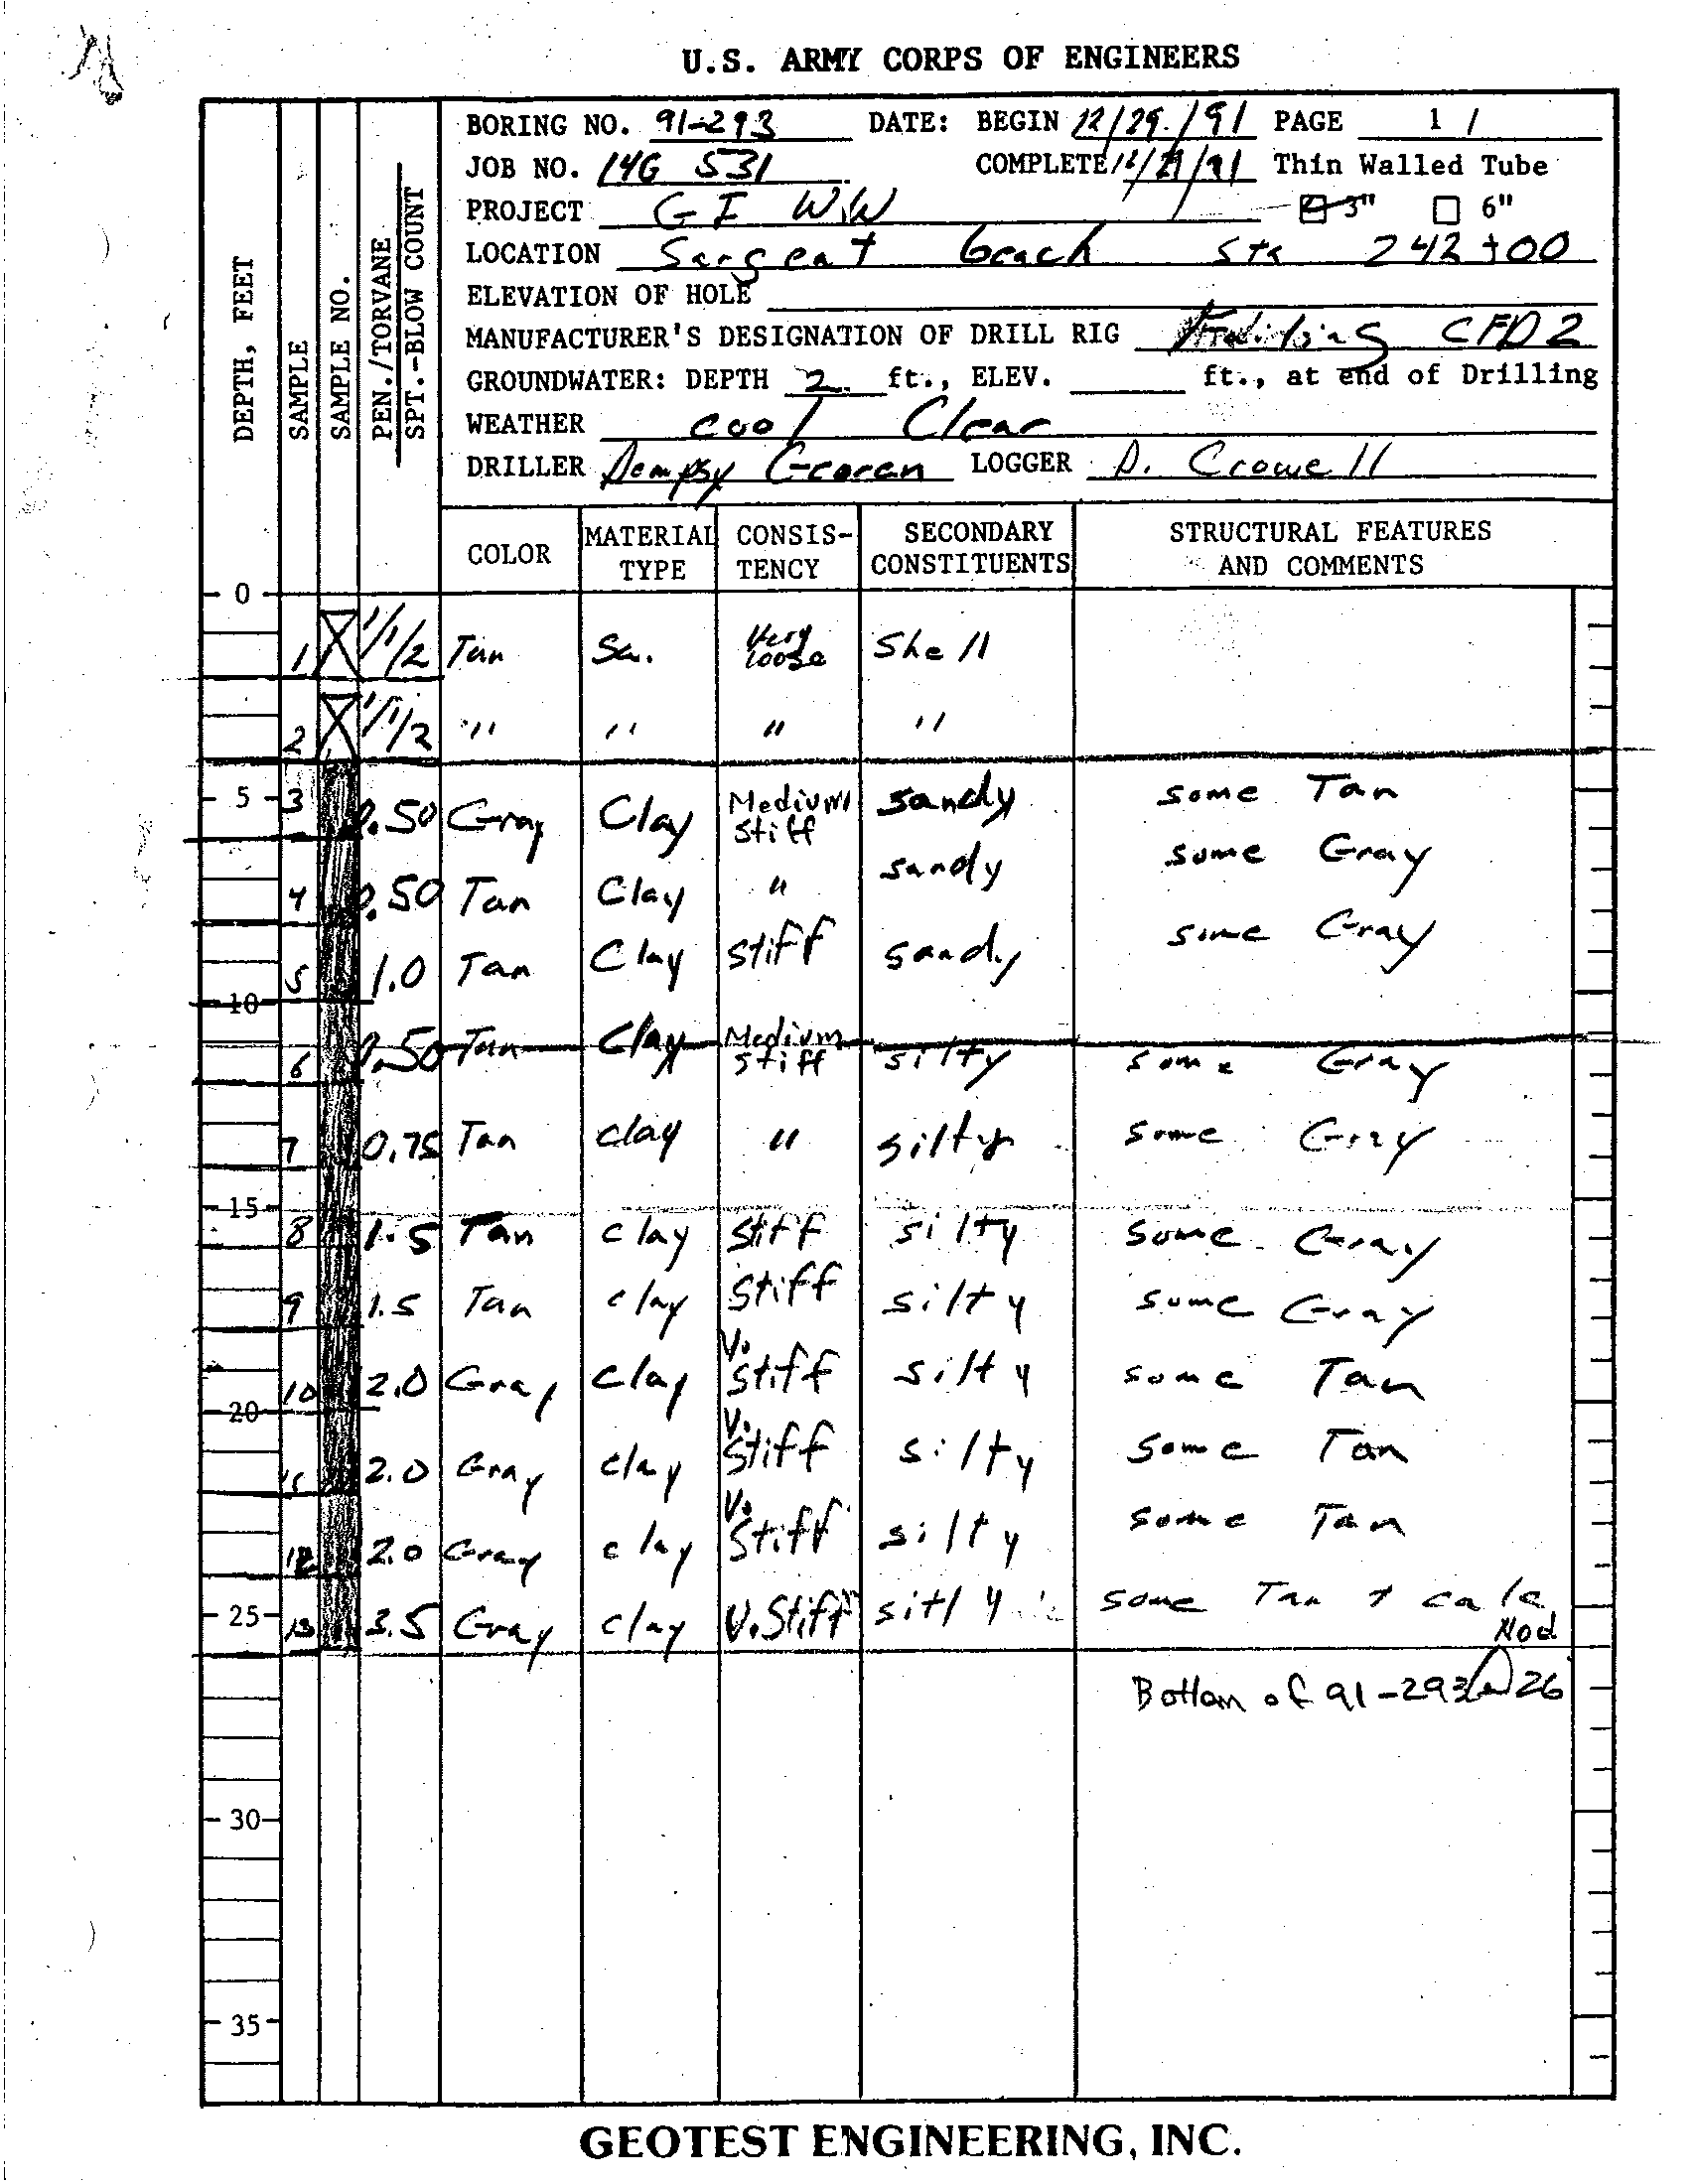 U.S. ARMY CORPS OF ENGINEERS
BORING NO. 91-293 DATE: BEGIN 12/29/91 PAGE 1 /
JOB NO. 14G 531 COMPLETE 12/29/91 Thin Walled Tube
PROJECT GI WW 3" 6"
LOCATION Sargeat beach Sta 242+00
ELEVATION OF HOLE
MANUFACTURER'S DESIGNATION OF DRILL RIG CFD 2
GROUNDWATER: DEPTH 2. ft., ELEV. ft., at end of Drilling
WEATHER cool Clear
DRILLER Dempsy LOGGER D. Crowell
DEPTH, FEET
SAMPLE
SAMPLE NO.
PEN./TORVANE
SPT.-BLOW COUNT
COLOR MATERIAL TYPE CONSIS-TENCY SECONDARY CONSTITUENTS STRUCTURAL FEATURES AND COMMENTS
0
1 1/1/2 Tan Sa. Very loose Shell
2 1/1/2 " " " "
5 3 0.50 Gray Clay Medium stiff sandy some Tan
4 0.50 Tan Clay " sandy some Gray
5 1.0 Tan Clay stiff sandy some Gray
10
6 0.50 Tan Clay Medium stiff silty some Gray
7 0.75 Tan clay " silty some Gray
15
8 1.5 Tan clay stiff silty some Gray
9 1.5 Tan clay stiff silty some Gray
10 2.0 Gray clay V. stiff silty some Tan
20
11 2.0 Gray clay V. stiff silty some Tan
12 2.0 Gray clay V. stiff silty some Tan
25 13 3.5 Gray clay V. Stiff sitly some Tan + calc Nod
Bottom of 91-293 @ 26
30
35
GEOTEST ENGINEERING, INC.